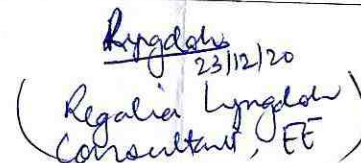 Ryngdoh
23/12/20
(Regalia Lyngdoh)
Consultant, EE